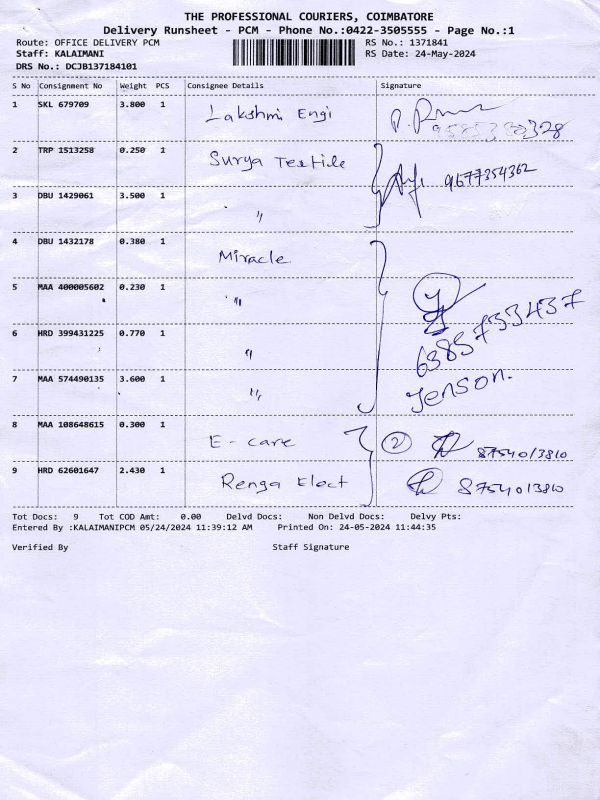 THE PROFESSIONAL COURIERS, COIMBATORE
Delivery Runsheet - PCM - Phone No.:0422-3505555 - Page No.:1
Route: OFFICE DELIVERY PCM RS No.: 1371841
Staff: KALAIMANI RS Date: 24-May-2024
DRS No.: DCJB137184101
S No Consignment No Weight PCS Consignee Details Signature
1 SKL 679709 3.800 1 Lakshmi Engi
2 TRP 1513258 0.250 1 Surya Textile 9677354362
3 DBU 1429061 3.500 1 "
4 DBU 1432178 0.380 1 Miracle
5 MAA 400005602 0.230 1 "
6385733437
6 HRD 399431225 0.770 1 "
7 MAA 574490135 3.600 1 " Jenson.
8 MAA 108648615 0.300 1 E-care 2 8754013810
9 HRD 62601647 2.430 1 Renga Elact 8754013810
Tot Docs: 9 Tot COD Amt: 0.00 Delvd Docs: Non Delvd Docs: Delvy Pts:
Entered By :KALAIMANIPCM 05/24/2024 11:39:12 AM Printed On: 24-05-2024 11:44:35
Verified By Staff Signature